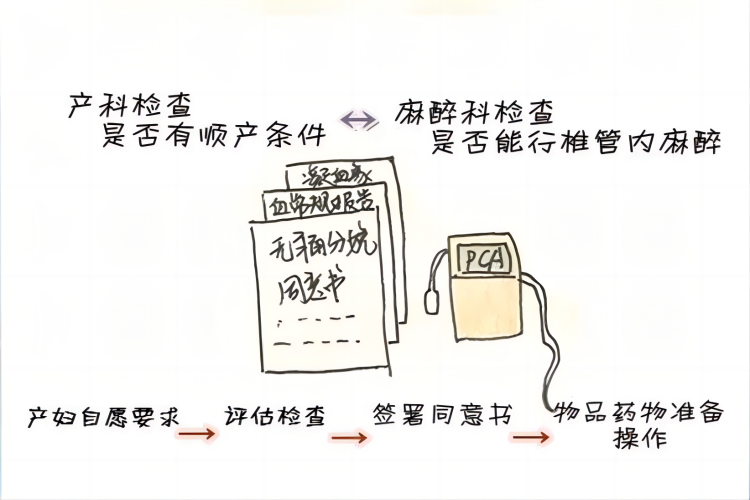 产科检查
是否有顺产条件
麻醉科检查
是否能行椎管内麻醉
凝血象
血常规报告
无痛分娩
同意书
PCA
产妇自愿要求
评估检查
签署同意书
物品药物准备
操作